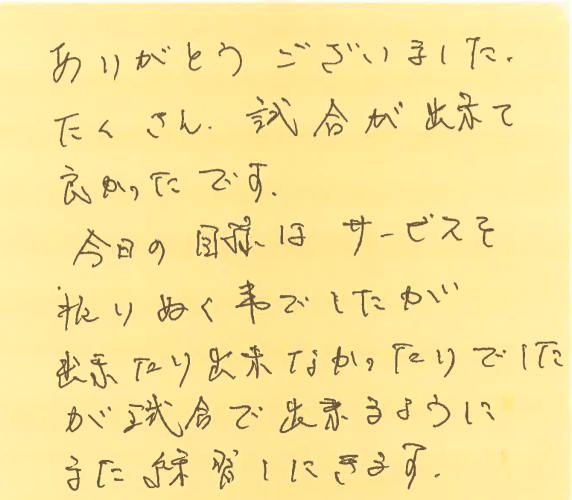 ありがとうございました.
たくさん. 試合が出来て
良かったです.
今日の目標はサービスを
振りぬく事でしたが
出来たり出来なかったりでした
が試合で出来るように
また練習しにきます.